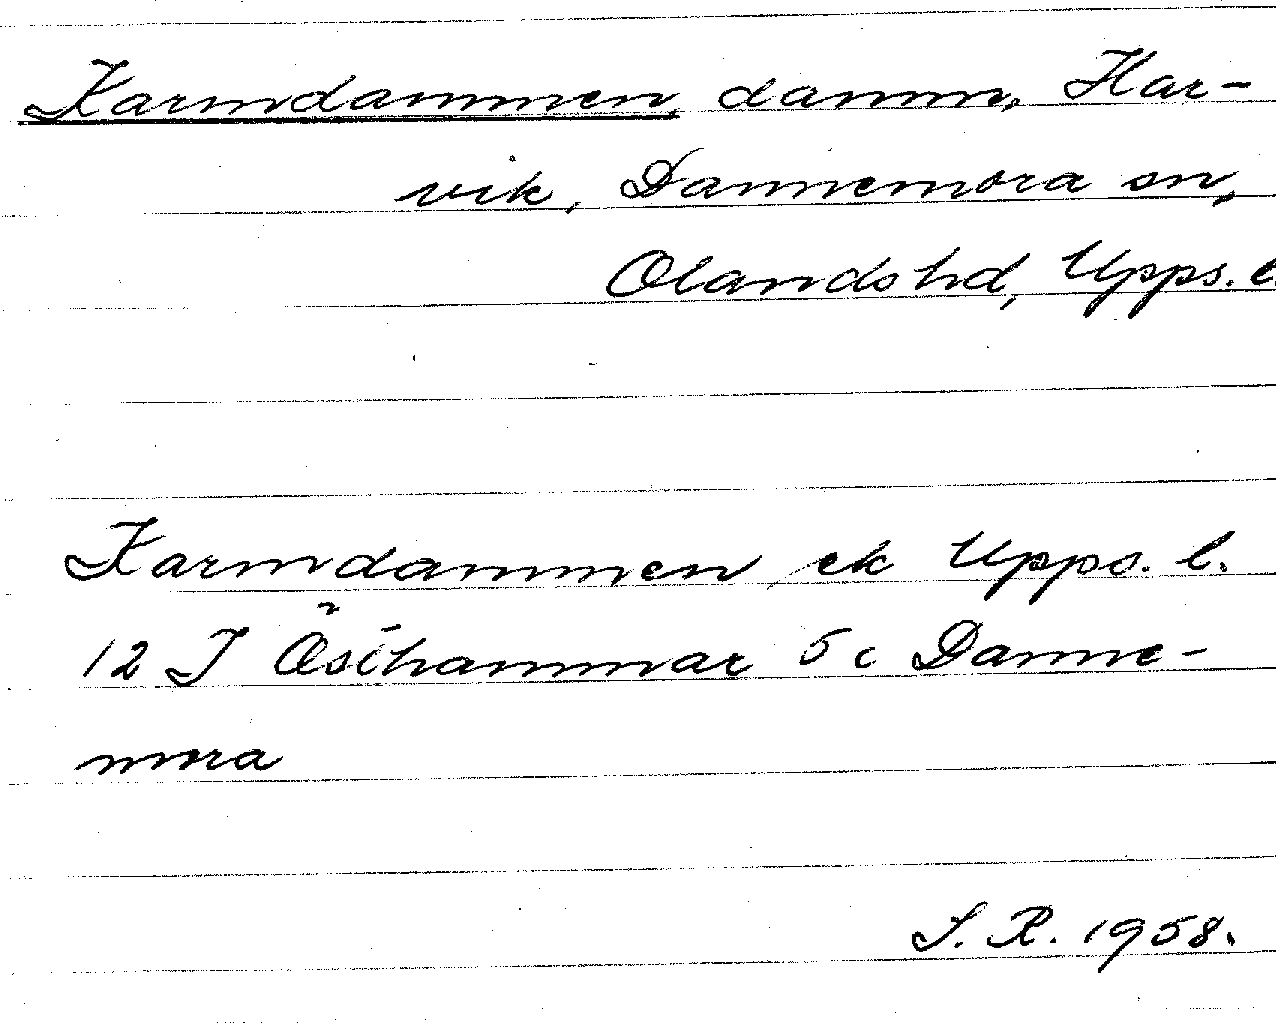 Karmdammen, damm, Har-
vik, Dannemora sn,
Olands hd, Upps. l.
Karmdammen ek Upps. l.
12 I Östhammar 5 c Danne-
mora
S. R. 1958.